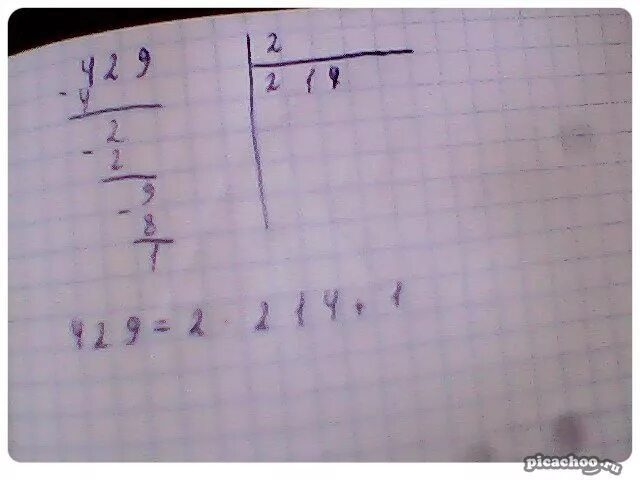 429 | 2
- 4 | 214
2
- 2
9
- 8
1
429 = 2 · 214 + 1
picachoo.ru